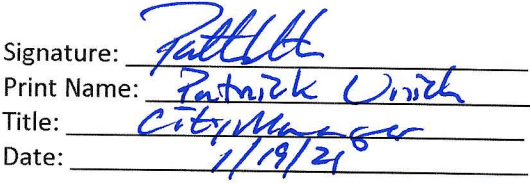 Signature:
Print Name: Patrick Urich
Title: City Manager
Date: 1/19/21